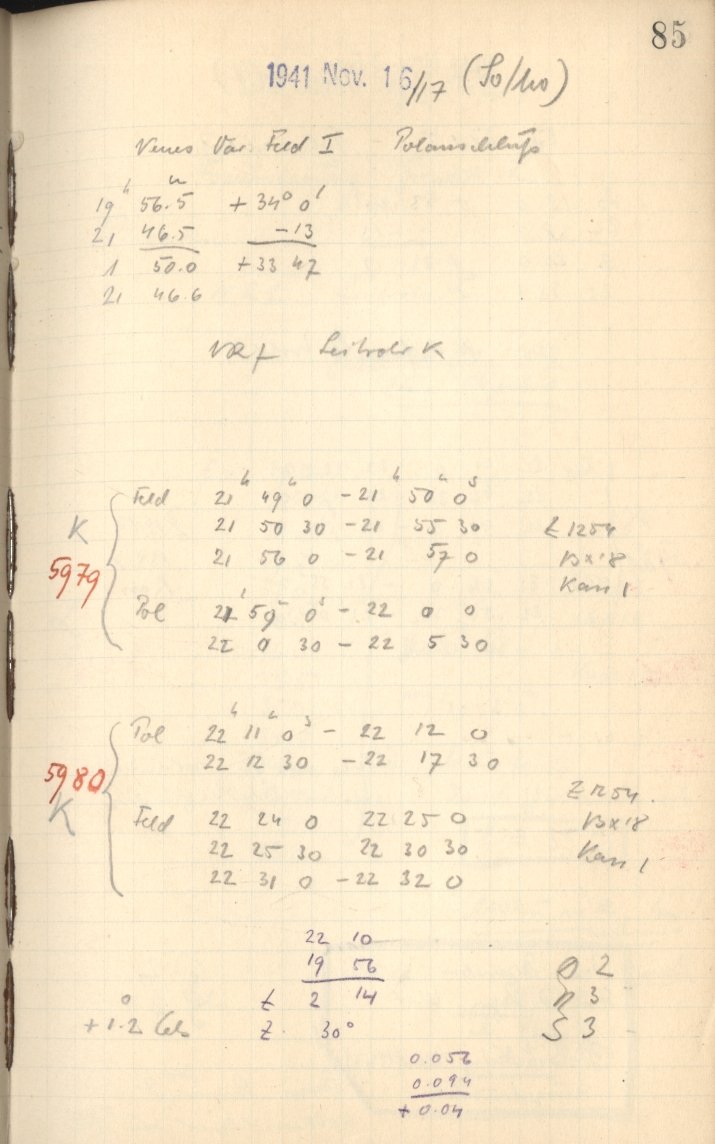 85
1941 Nov. 16/17 (So/Mo)
Neues Var. Feld I Polanschluß
19ʰ 56.5ᵐ + 34° 0'
21 46.5 - 13
1 50.0 + 33 47
21 46.6
Leitrohr K
Feld 21ʰ 49ᵐ 0 - 21ʰ 50ᵐ 0ˢ
K 21 50 30 - 21 55 30 Z 1254
5979 21 56 0 - 21 57 0 Bx'8
Kass 1
Pol 21 59 0 - 22 0 0
22 0 30 - 22 5 30
Pol 22ʰ 11ᵐ 0ˢ - 22 12 0
5980 22 12 30 - 22 17 30
K Z 1254.
Feld 22 24 0 22 25 0 Bx'8
22 25 30 22 30 30 Kass 1
22 31 0 - 22 32 0
22 10
19 56 O 2
t 2 14 R 3
+1.2° Cels z 30° S 3
0.056
0.094
+ 0.04